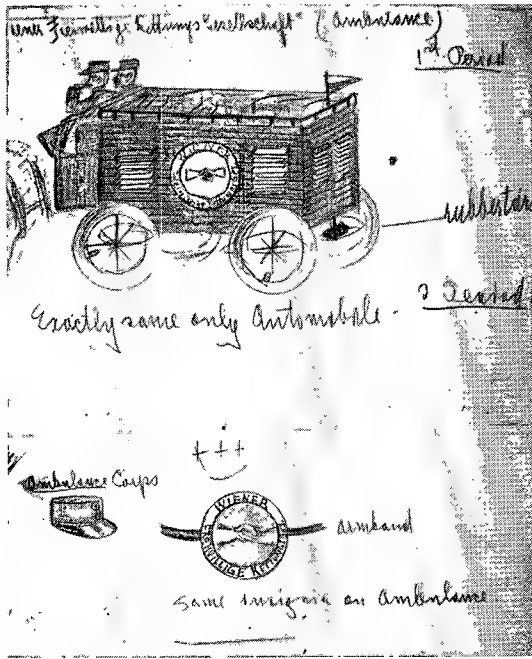 iener Freiwillige Rettungs Gesellschaft" (Ambulance)
1st Period
WIENER
rubber
Exactly same only Automobile -
2 Period
+++
Ambulance Corps
WIENER
FREIWILLIGE RETTUNGS
armband
Same insignia on Ambulance